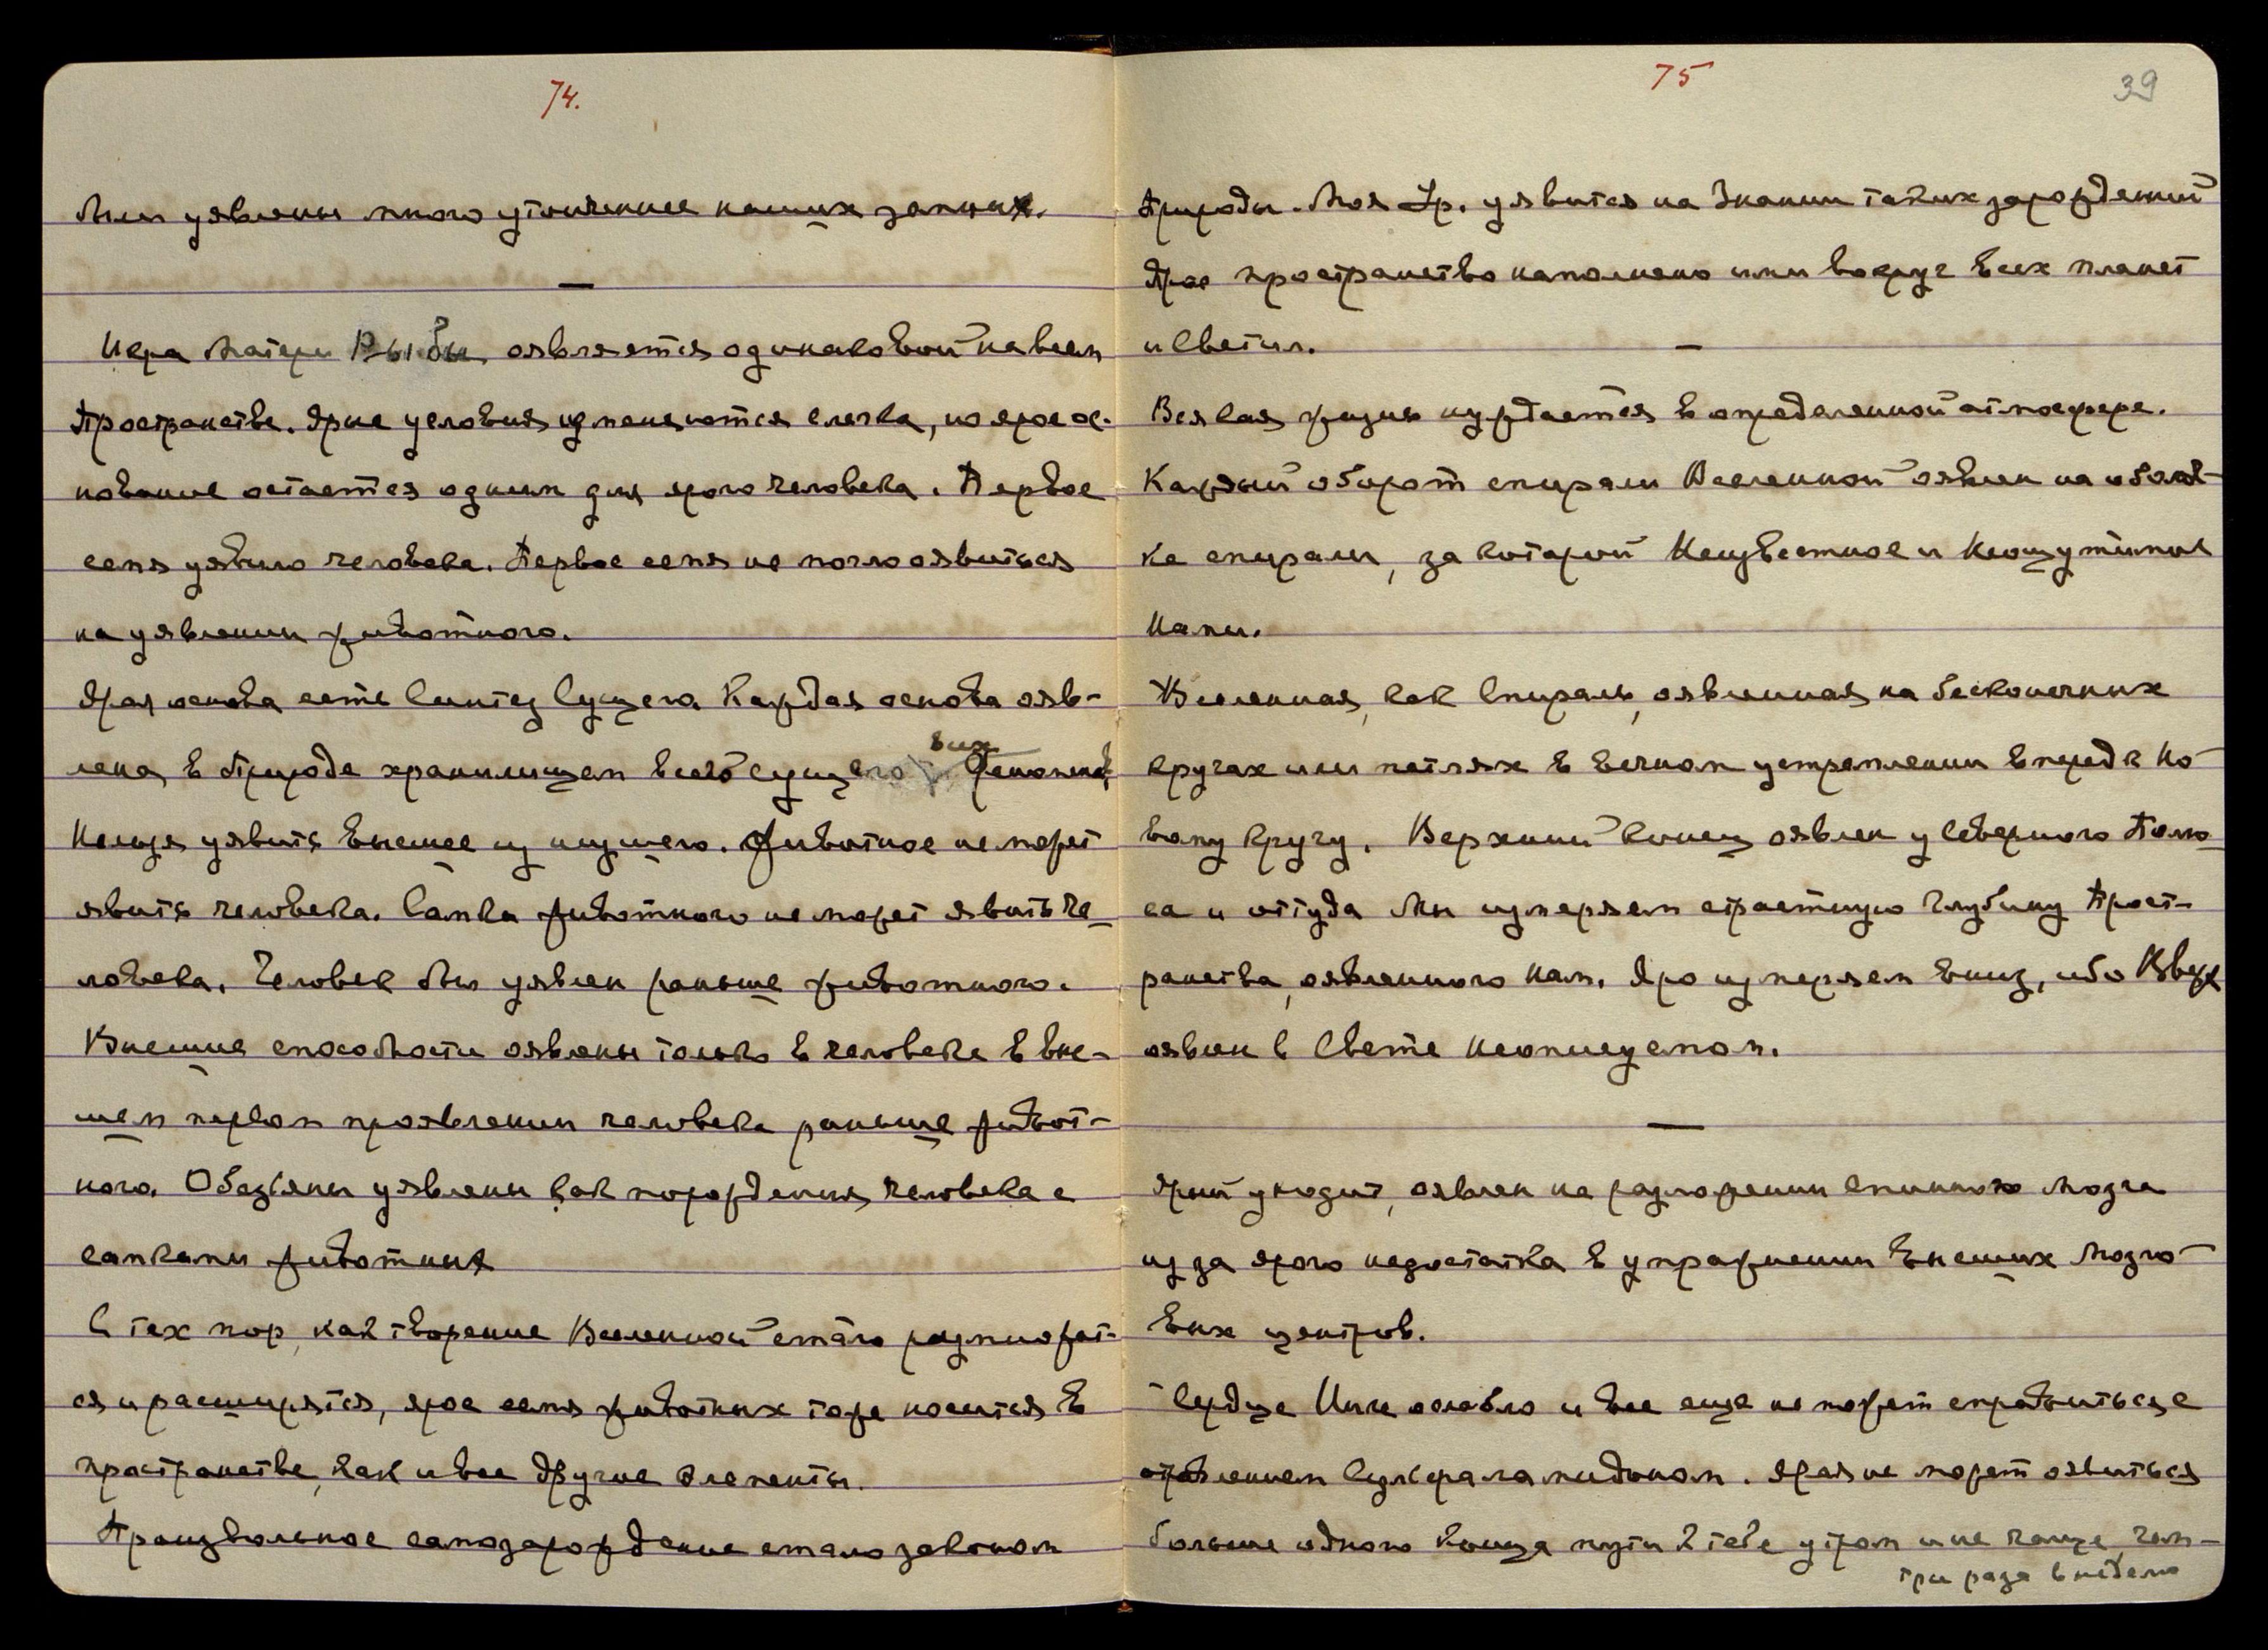 74.
были уявлены много утонченнее наших земных.
—
Икра Матери Рыбы оявляется одинаковой на всем
Пространстве. Ярые условия изменяются слегка, но ярое ос-
нование остается одним для ярого человека. Первое
семя уявило человека. Первое семя не могло оявиться
на уявлении животного.
Ярая основа есть Синтез Сущего. Каждая основа явл-
лена в Природе хранилищем всего сущего всех
Нельзя уявить высшее из низшего. Животное не может
явить человека. Самка животного не может явить че-
ловека. Человек был уявлен раньше животного.
Высшие способности оявлены только в человеке в выс-
шем первом проявлении человека раньше живот-
ного. Обезьяны уявлены как порождения человека с
самками животных
С тех пор, как творение Вселенной стало размножат-
ся и расширятся, ярое семя животных тоже носится в
пространстве, как и все другие элементы.
Произвольное самозарождение стало законом
75
39
Природы. Моя Ур. уявится на Знании таких зарождений
Ярое пространство наполнено ими вокруг всех планет
и Светил.
—
Всякая жизнь нуждается в определенной атмосфере.
Каждый оборот спирали Вселенной оявлен на оболоч-
ке спирали, за которой Неизвестное и Неощутимое
Нами.
Вселенная, как Спираль, оявленная на бесконечных
кругах или петлях в вечном устремлении вперед к но-
вому кругу. Верхний конец оявлен у Северного Полю-
са и оттуда Мы измеряем страстную глубину Прост-
ранства, оявленного нам. Яро измеряем вниз, ибо Вверх
оявлен в Свете Неописуемом.
—
Ярый уходит, оявлен на разложении спинного мозга
из за ярого недостатка в упражнении высших мозго-
вых центров.
Сердце Инге ослабло и все еще не может справиться с
отравлением Сульфаламидоном. Ярая не может оявиться
больше одного конца пути к тебе утром и не чаще, чем
три раза в неделю